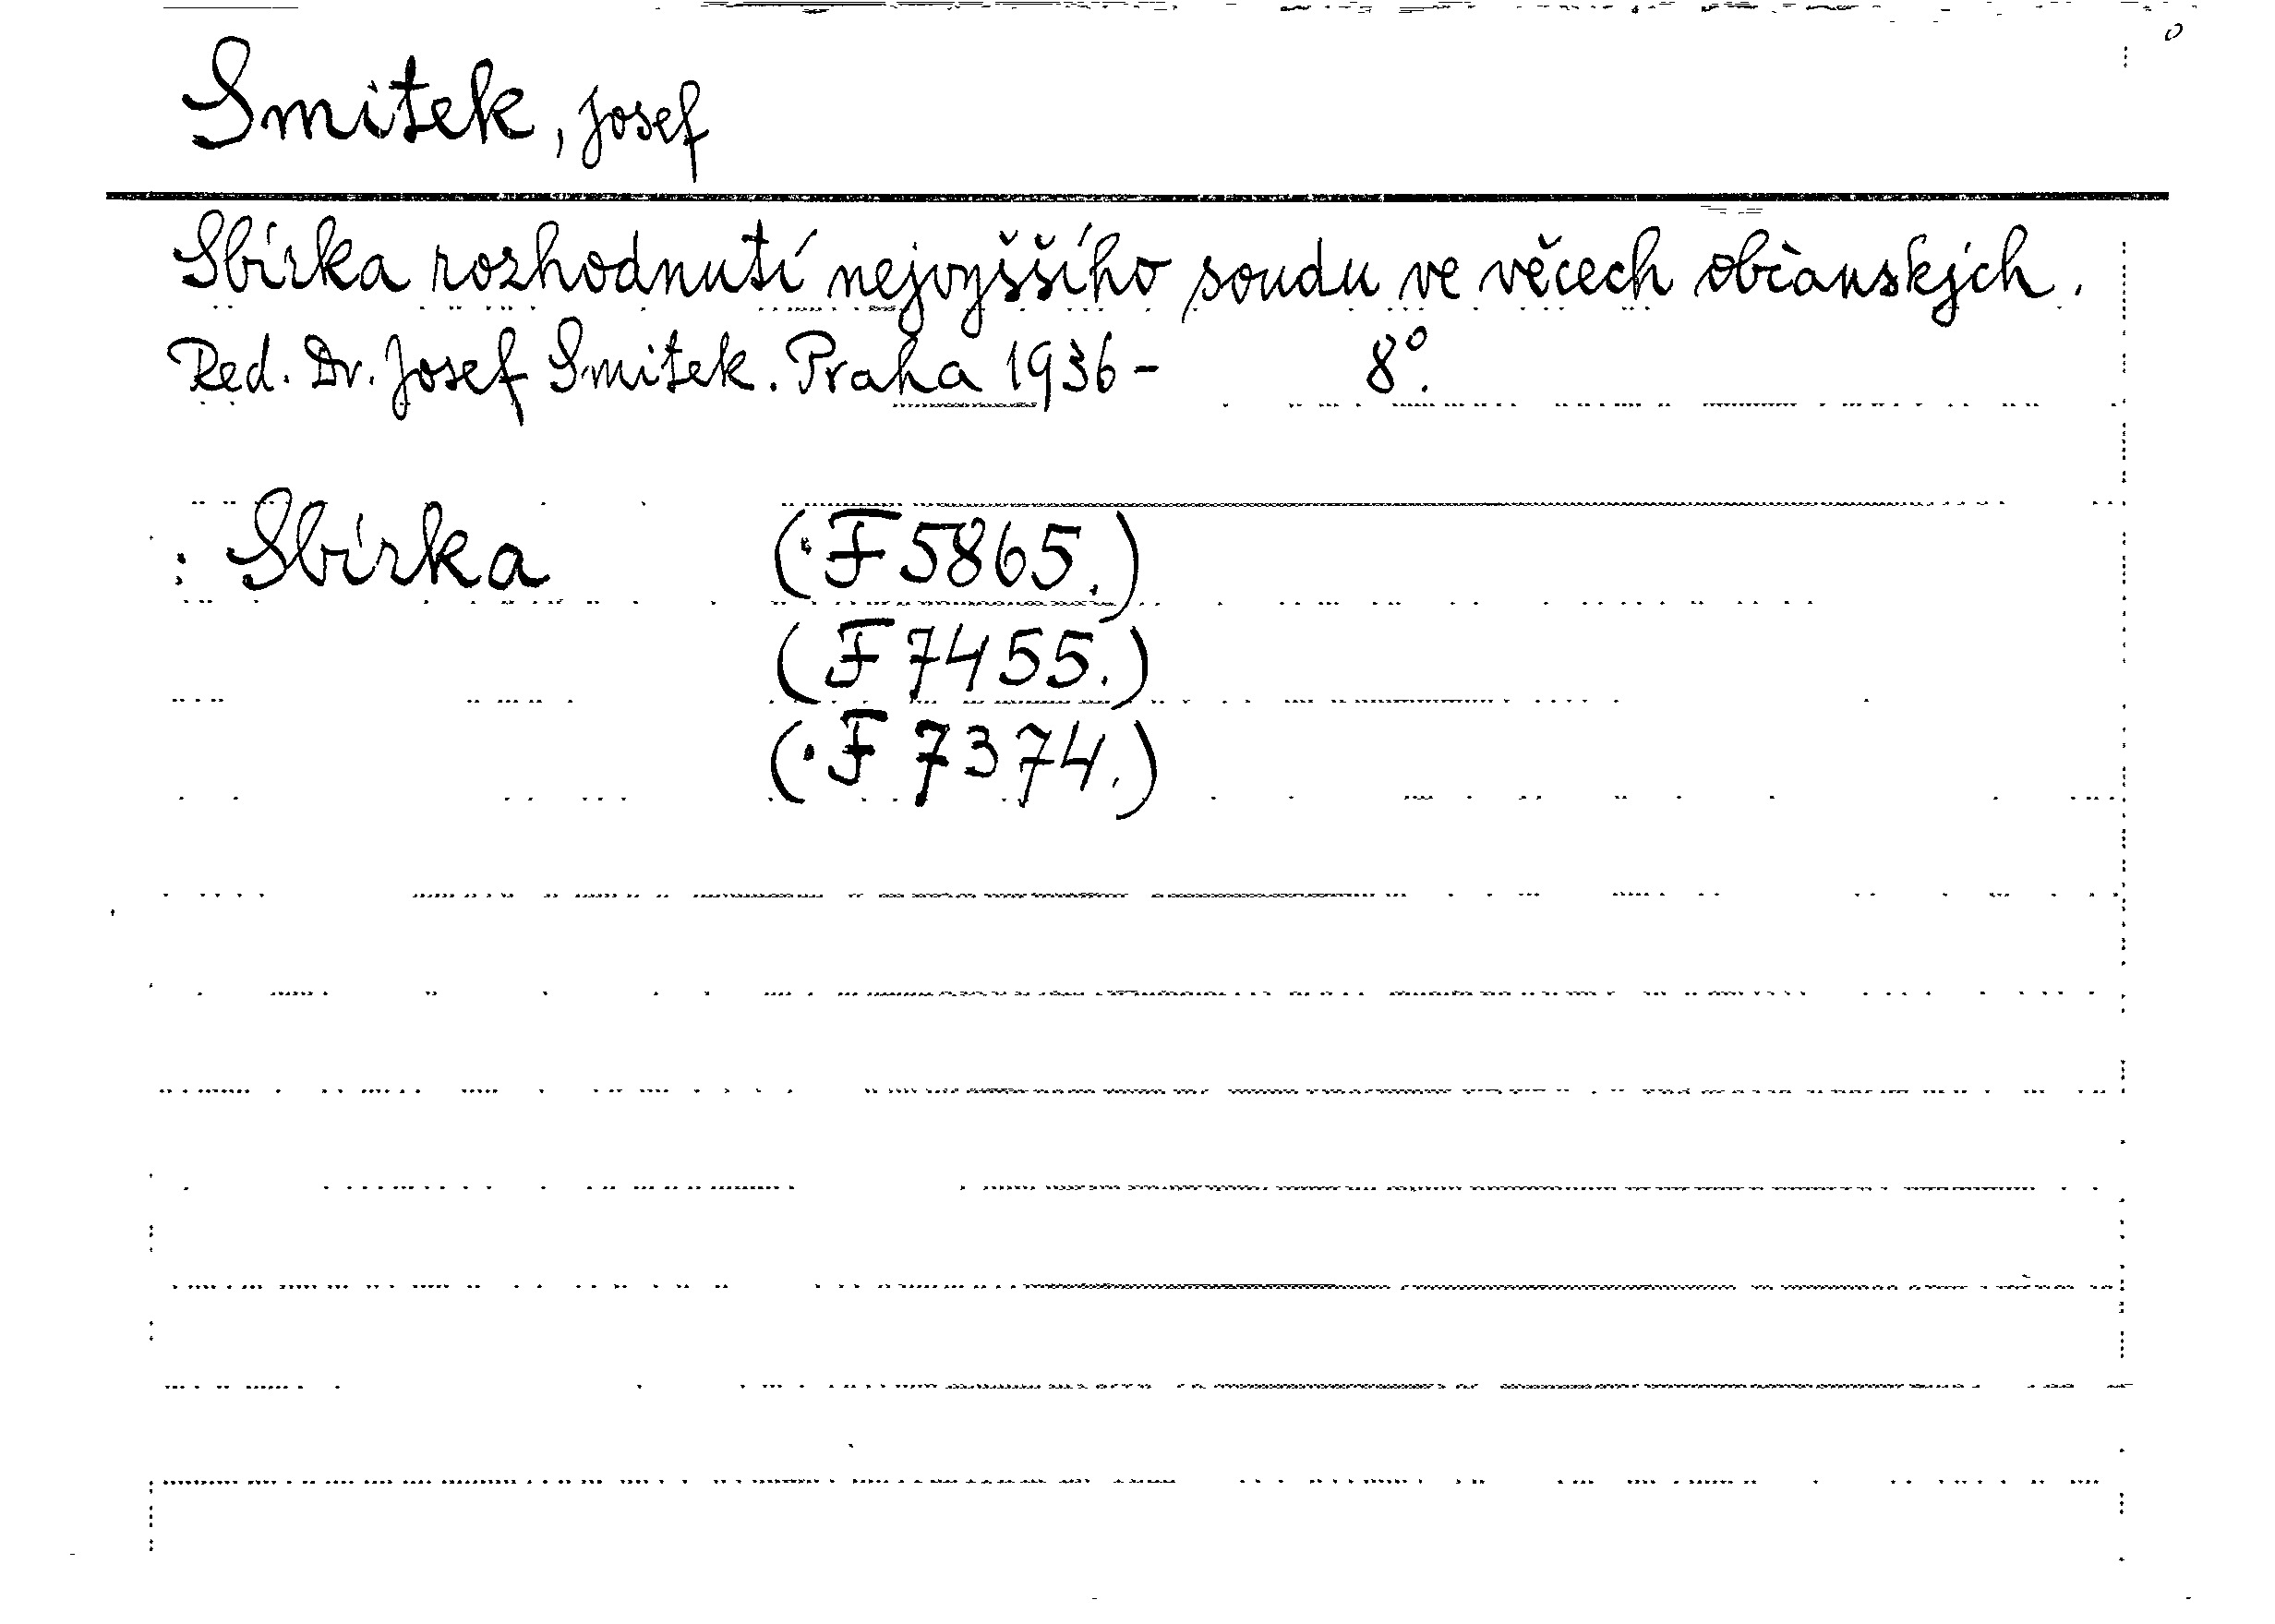 Smitek, Josef
Sbírka rozhodnutí nejvyššího soudu ve věcech občanských.
Red. Dr. Josef Smitek. Praha 1936- 8°.
: Sbírka (·F 5865.)
(F 7455.)
(·F 7374.)